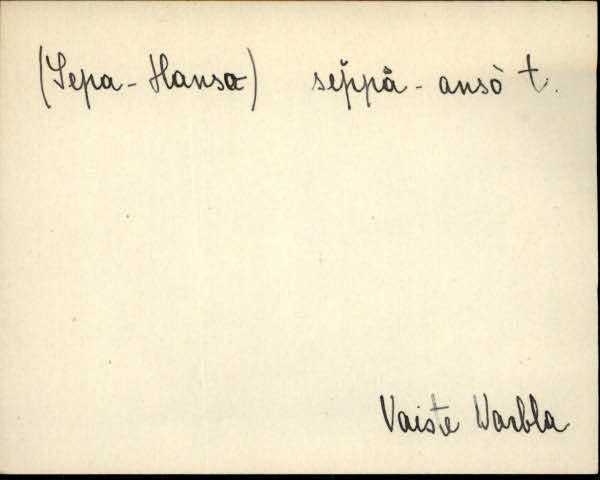 (Sepa-Hansa) seppå-ansò t.
Vaiste Warbla